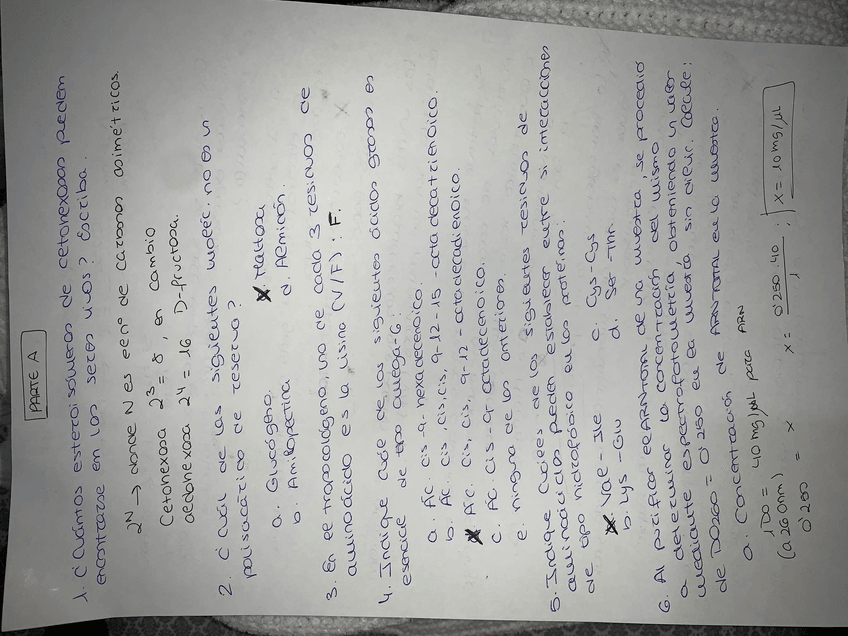 PARTE A
1. ¿Cuántos estereoisómeros de cetohexosas pueden
encontrarse en los seres vivos? Escriba.
2^N → donde N es el nº de carbonos asimétricos.
Cetohexosa 2³ = 8, en cambio
aldohexosa 2⁴ = 16 D-fructosa.
2. ¿Cuál de las siguientes moléc. no es un
polisacárido de reserva?
a. Glucógeno
b. Amilopectina
Maltosa
d. Almidón.
3. En el tropocolágeno, uno de cada 3 residuos de
aminoácido es la lisina (V/F): F.
4. Indique cuál de los siguientes ácidos grasos es
esencial de tipo omega-6:
a. Ác. cis-9-hexadecenoico.
b. Ác cis, cis, cis, 9-12-15-octadecatrienoico.
Ác. cis, cis, 9-12-octadecadienoico.
c. Ác. cis-9-octadecenoico.
e. ninguna de las anteriores.
5. Indique cuáles de los siguientes residuos de
aminoácidos pueden establecer entre si interacciones
de tipo hidrofóbico en las proteínas:
Val-Ile
b. Lys-Glu
c. Cys-Cys
d. Ser-Thr.
6. Al purificar el ARN TOTAL de una muestra, se procedió
a determinar la concentración del mismo
mediante espectrofotometría, obteniendo un valor
de DO260 = 0'250 en la muestra sin diluir. Calcule:
a. Concentración de ARN TOTAL en la muestra.
1DO = 40 mg/µL para ARN
(a 260nm)
0'250 = x
x = 0'250·40 / 1 ; x = 10 mg/µL